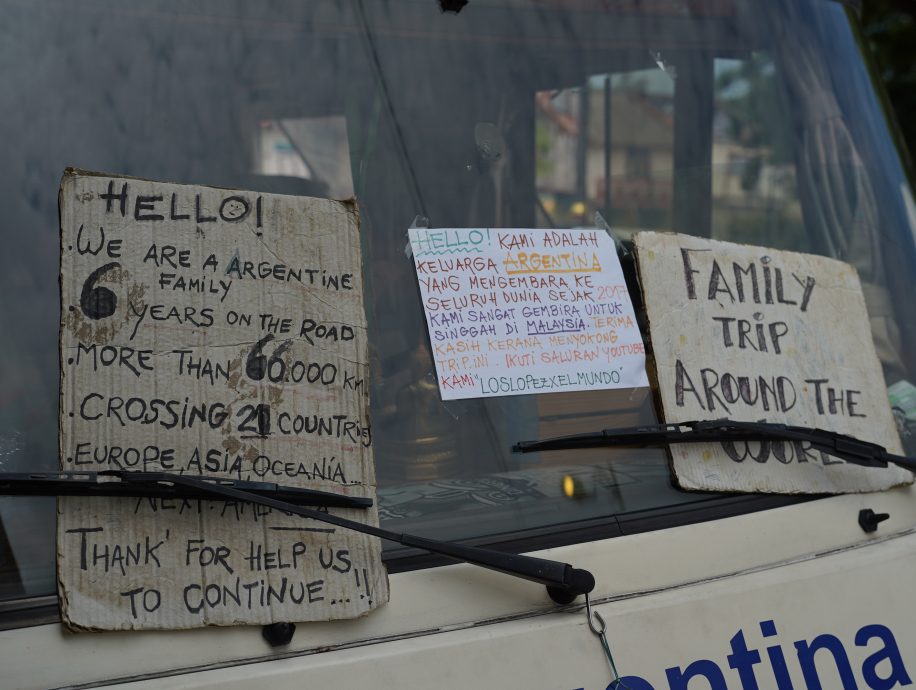 HELLO!
.WE ARE A ARGENTINE
FAMILY
.6 YEARS ON THE ROAD
.MORE THAN 66.000 km
.CROSSING 21 COUNTRIES
.EUROPE, ASIA, OCEANÍA...
NEXT: AMERICA
THANK' FOR HELP US
TO CONTINUE...!!
HELLO! KAMI ADALAH
KELUARGA ARGENTINA
YANG MENGEMBARA KE
SELURUH DUNIA SEJAK 2017
KAMI SANGAT GEMBIRA UNTUK
SINGGAH DI MALAYSIA. TERIMA
KASIH KERANA MENYOKONG
TRIP INI. IKUTI SALURAN YOUTUBE
KAMI "LOSLOPEZXELMUNDO"
FAMILY
TRIP
AROUND THE
WORLD
entina